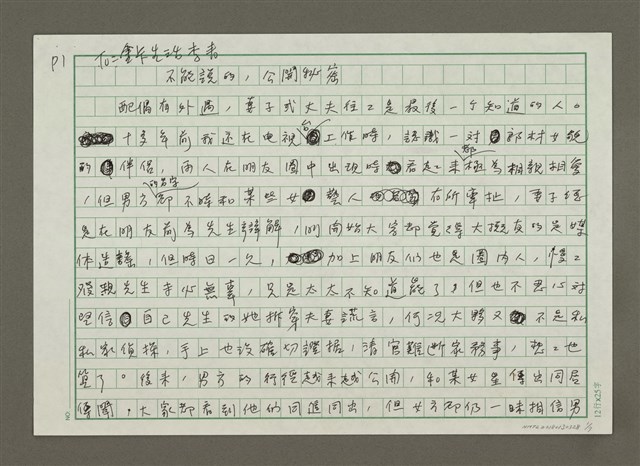 P1
To=金先生 李春
不能說的,公開秘密
配偶有外遇,妻子或丈夫往往是最後一个知道的人。
十多年前我还在电視台工作時,認識一对郎才女貌
的伴侶,兩人在朋友圈中出現時看起來都極為相親相愛
,但男方的名字却不時和某些女藝人有所牽扯,妻子經
常在朋友前為先生辯解,開始大家都覺得大概真的是媒
体造謠,但時日一久,加上朋友们也是圈內人,慢慢
發現先生非止無辜,只是太太不知道罷了,但也不忍心对
堅信自己先生的她拆穿夫妻謊言,何况大夥又不是私
私家偵探,手上也沒確切證據,清官難断家務事,想想也
算了。後來,男方的行徑越來越公開,和某女星傳出同居
傳聞,大家都看到他们同進同出,但女方却仍一昧相信男
NO.
12行×25字